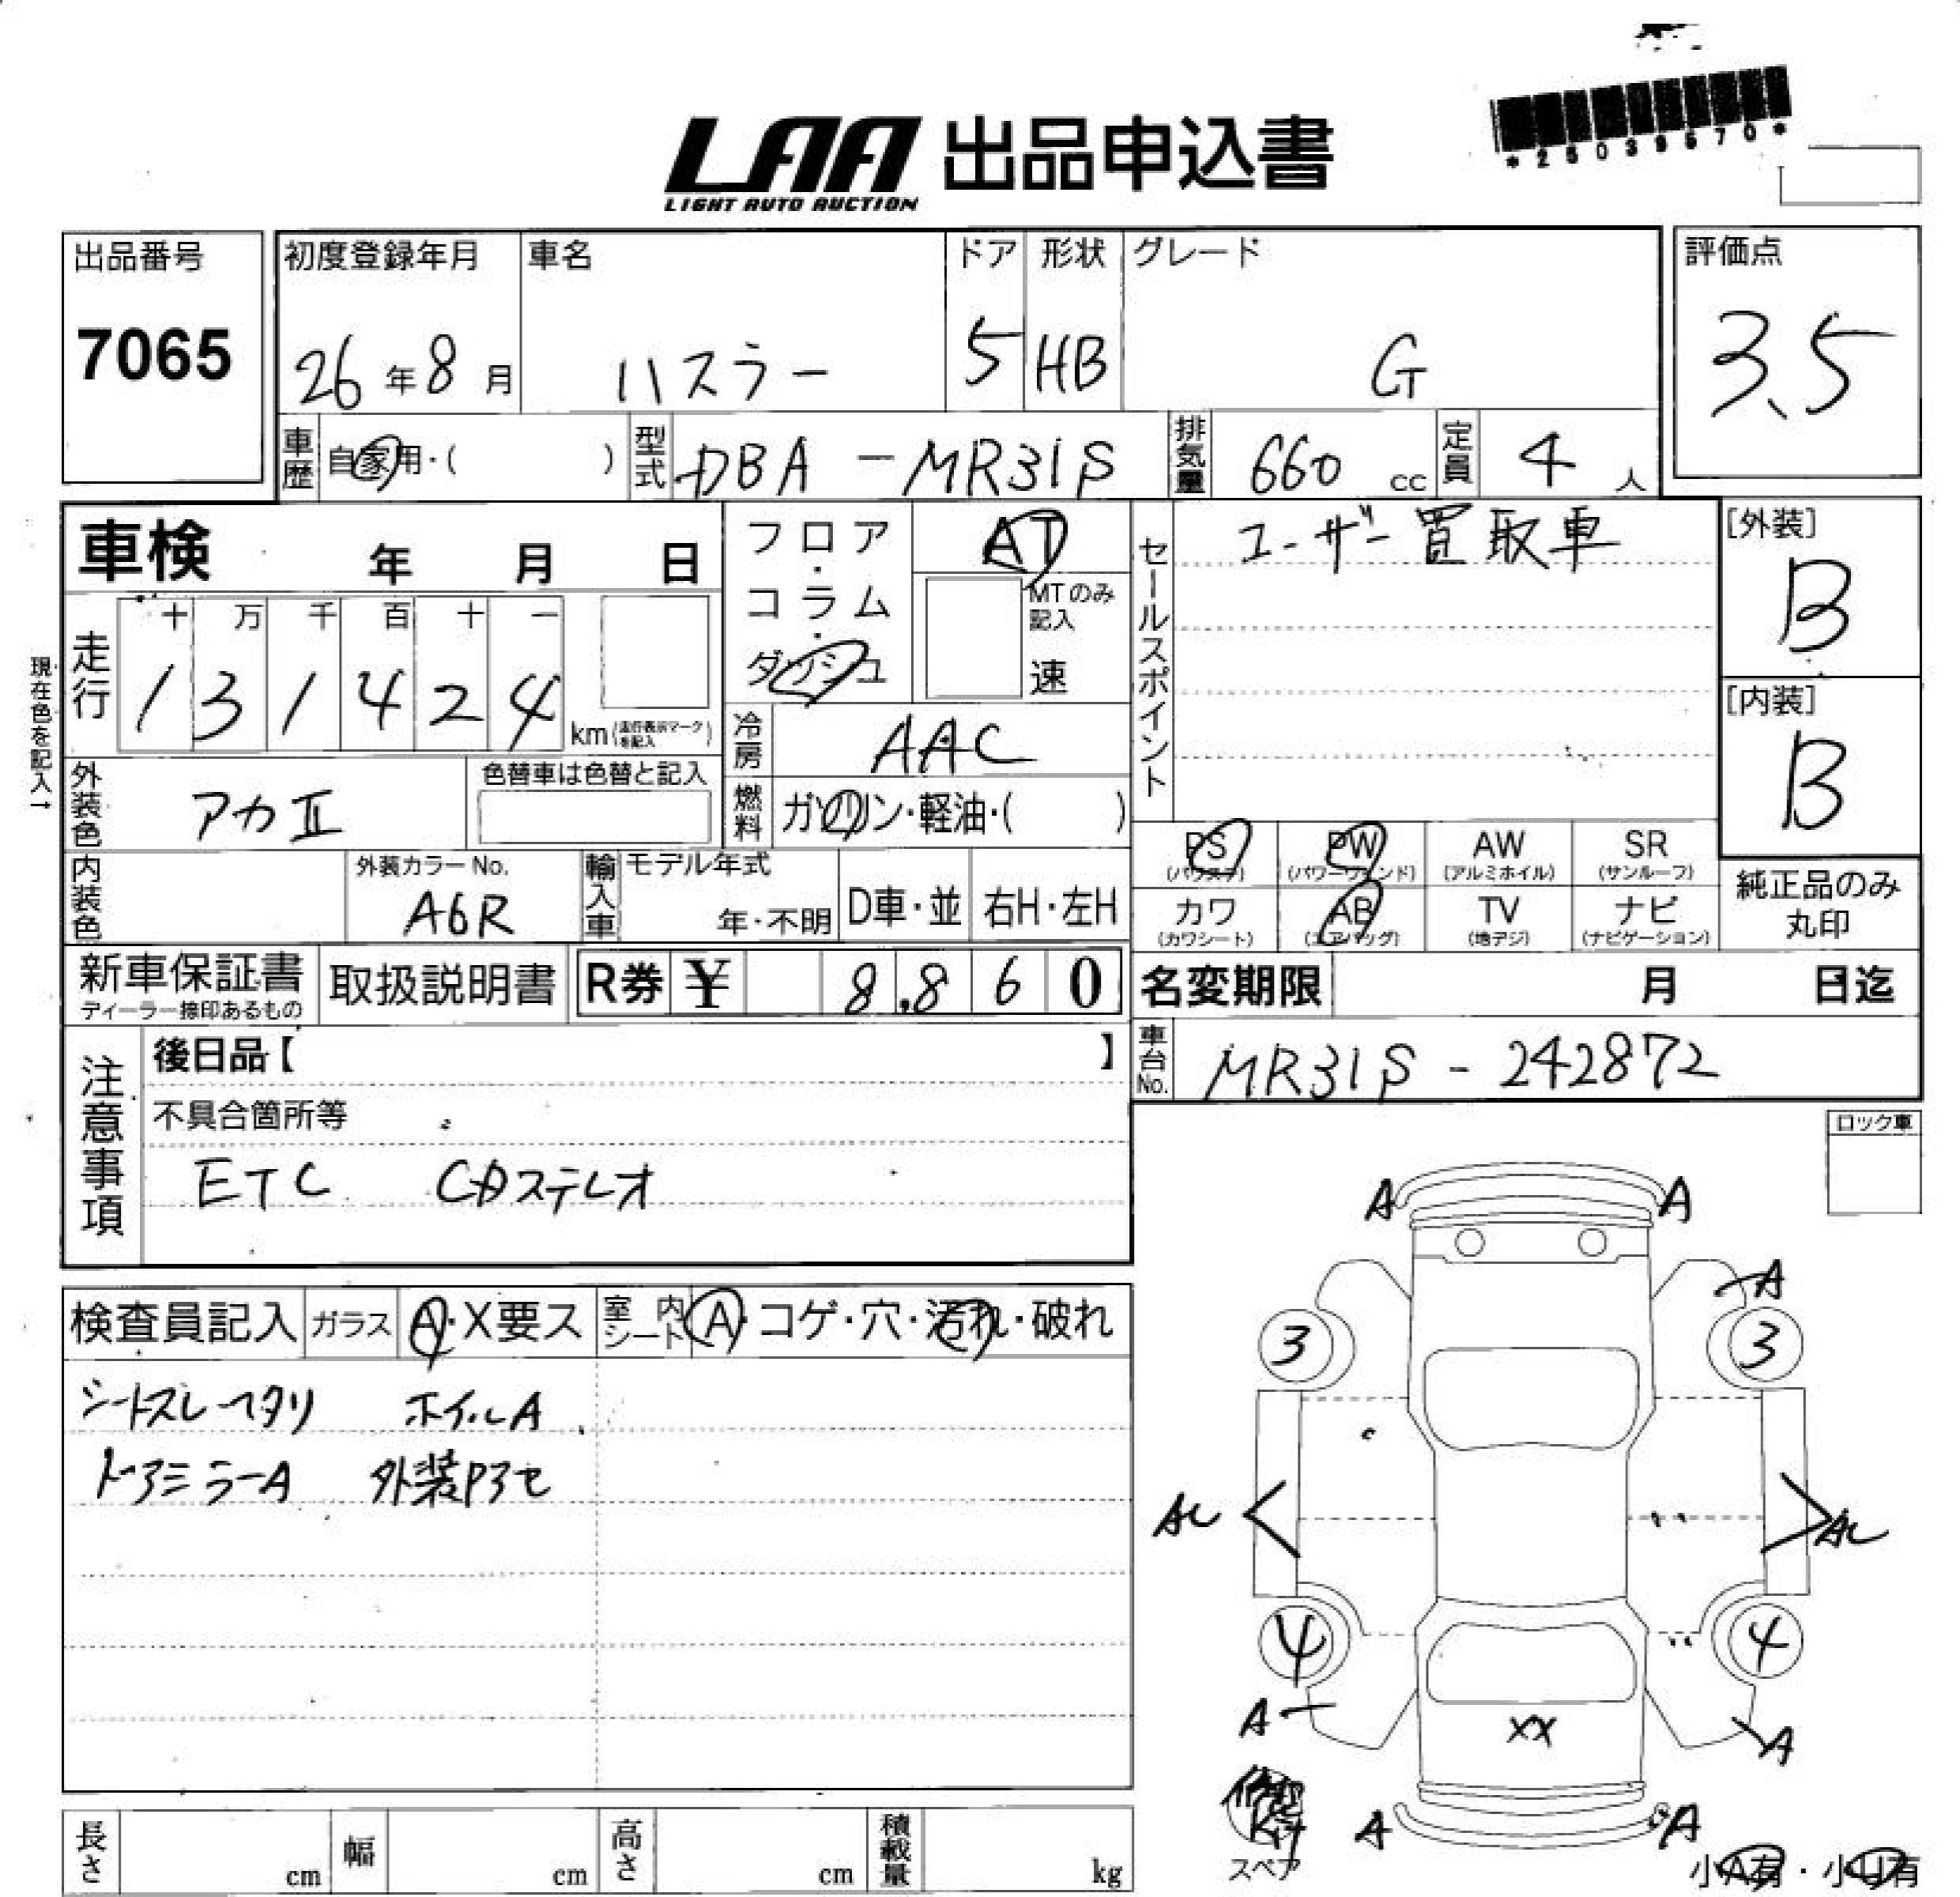 *25039570*
LAA 出品申込書
LIGHT AUTO AUCTION
出品番号 初度登録年月 車名 ドア 形状 グレード 評価点
7065 26年8月 ハスラー 5 HB G 3.5
車歴 自家用・( ) 型式 DBA-MR31S 排気量 660 cc 定員 4 人
車検 年 月 日
フロア・コラム・ダッシュ AT
MTのみ記入 速
セールスポイント ユーザー買取車
[外装] B
[内装] B
現在色を記入→
走行 十 万 千 百 十 一
1 3 1 4 2 4 km (走行表示マークを記入)
冷房 AAC
外装色 アカⅡ 色替車は色替と記入
燃料 ガソリン・軽油・( )
PS (パワステ) PW (パワーウィンド) AW (アルミホイル) SR (サンルーフ)
カワ (カワシート) AB (エアバッグ) TV (地デジ) ナビ (ナビゲーション)
純正品のみ丸印
内装色 外装カラーNo. A6R 輸入車 モデル年式 年・不明 D車・並 右H・左H
新車保証書 ディーラー捺印あるもの 取扱説明書 R券 ¥ 8,860 名変期限 月 日迄
車台No. MR31S-242872
注意事項 後日品【 】
不具合箇所等
ETC CDステレオ
ロック車
検査員記入 ガラス A・X要ス 室内シート A・コゲ・穴・汚れ・破れ
シートスレヘタリ ホイルA
ドアミラーA 外装アセ
A A
A
3 3
AL AL
4 4
A XX A
A A
スペア
小A有・小U有
長さ cm 幅 cm 高さ cm 積載量 kg